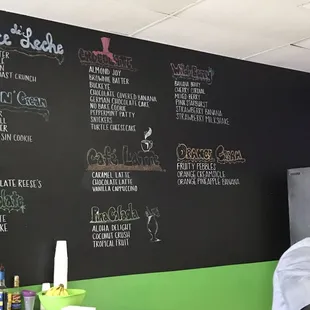 de Leche
COAST CRUNCH
N' Cream
SIN COOKIE
LATE REESE'S
CHOCOLATE
ALMOND JOY
BROWNIE BATTER
BUCKEYE
CHOCOLATE COVERED BANANA
GERMAN CHOCOLATE CAKE
NO BAKE COOKIE
PEPPERMINT PATTY
SNICKERS
TURTLE CHEESECAKE
Café Latte
CARAMEL LATTE
CHOCOLATE LATTE
VANILLA CAPPUCCINO
Pina Colada
ALOHA DELIGHT
COCONUT CRUSH
TROPICAL FRUIT
Wild Berry
BANANA BERRY
CHERRY CORDIAL
MIXED BERRY
PINK STARBURST
STRAWBERRY BANANA
STRAWBERRY MILKSHAKE
ORANGE CREAM
FRUITY PEBBLES
ORANGE CREAMSICLE
ORANGE PINEAPPLE BANANA